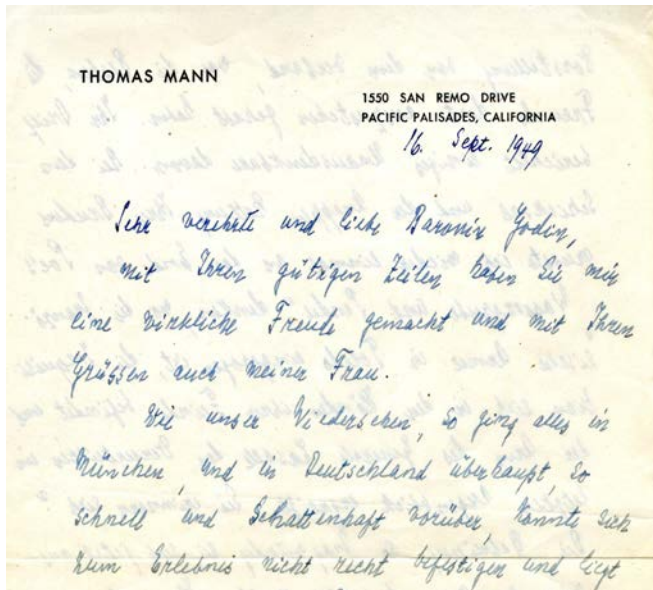 THOMAS MANN
1550 SAN REMO DRIVE
PACIFIC PALISADES, CALIFORNIA
16. Sept. 1949
Sehr verehrte und liebe Baronin Godin,
mit Ihren gütigen Zeilen haben Sie mir
eine wirkliche Freude gemacht und mit Ihren
Grüssen auch meiner Frau.
Wie unser Wiedersehen, so ging alles in
München, und in Deutschland überhaupt, so
schnell und schattenhaft vorüber, konnte sich
zum Erlebnis nicht recht befestigen und liegt